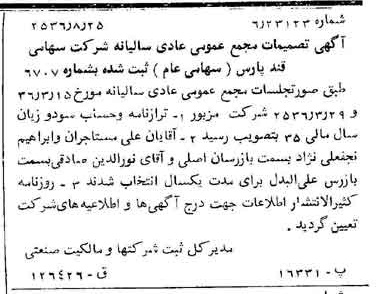 شماره ۶/۲۳۱۲۳ ۲۵۳۶/۸/۲۵
آگهی تصمیمات مجمع عمومی عادی سالیانه شرکت سهامی
قند پارس ( سهامی عام ) ثبت شده بشماره ۶۷۰۷
طبق صورتجلسات مجمع عمومی عادی سالیانه مورخ ۳۶/۳/۱۵
و ۲۵۳۶/۳/۲۹ شرکت مزبور ۱ـ ترازنامه وحساب سودو زیان
سال مالی ۳۵ بتصویب رسید ۲ ـ آقایان علی مستاجران وابراهیم
نجفعلی نژاد بسمت بازرسان اصلی و آقای نورالدین صادقی بسمت
بازرس علی‌البدل برای مدت یکسال انتخاب شدند ۳ ـ روزنامه
کثیرالانتشار اطلاعات جهت درج آگهی‌ها و اطلاعیه های شرکت
تعیین گردید .
مدیر کل ثبت شرکتها و مالکیت صنعتی
پ ـ ۱۶۳۳۱ ق ـ ۱۲۶۴۲۶